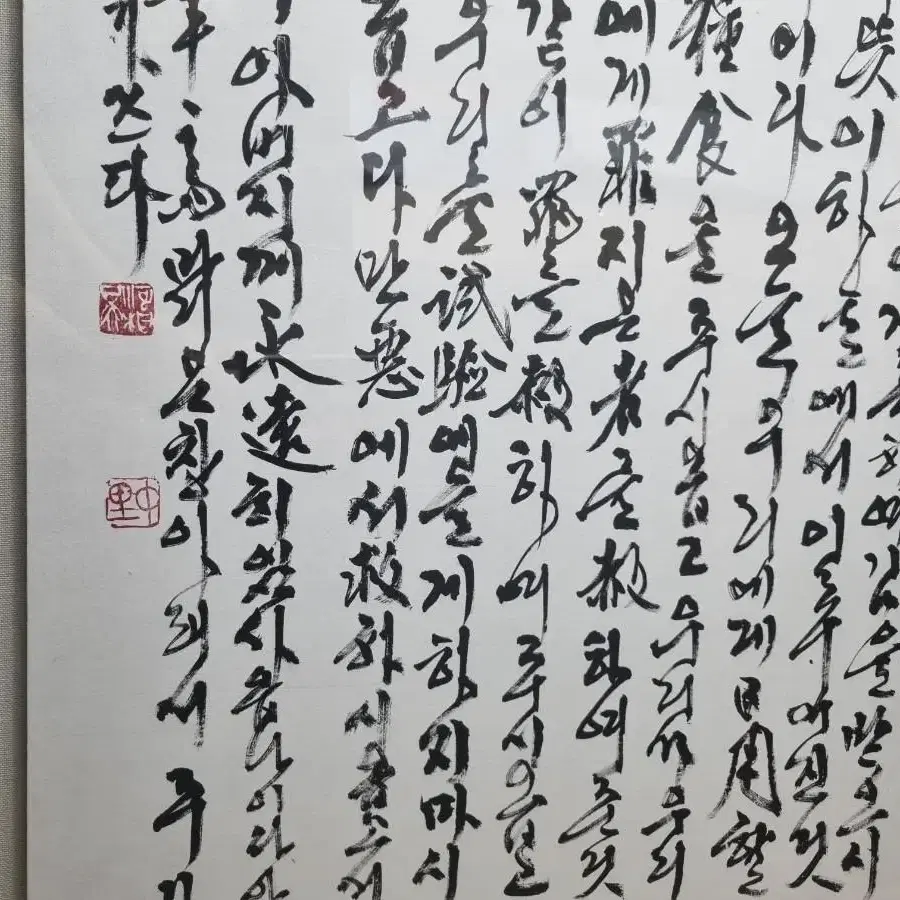 여김을 받으시
뜻이 하늘에서 이루어진것
이다 오늘 우리에게 日用할
糧食을 주시옵고 우리가 우리
에게 罪지은 者를 赦하여 준것
같이 罪를 赦하여 주시옵
우리를 試驗에 들게 하지 마시
옵고 다만 惡에서 救하시옵소서
아버지께 永遠히 있사옵나이다 아
쓰다